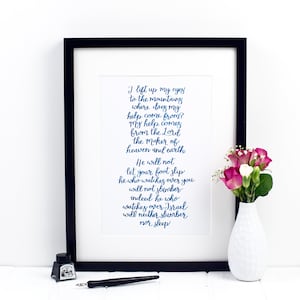 I lift up my eyes
to the mountains
where does my
help come from?
My help comes
from the Lord
the maker of
heaven and earth
He will not
let your foot slip
he who watches over you
will not slumber
indeed he who
watches over Israel
will neither slumber
nor sleep